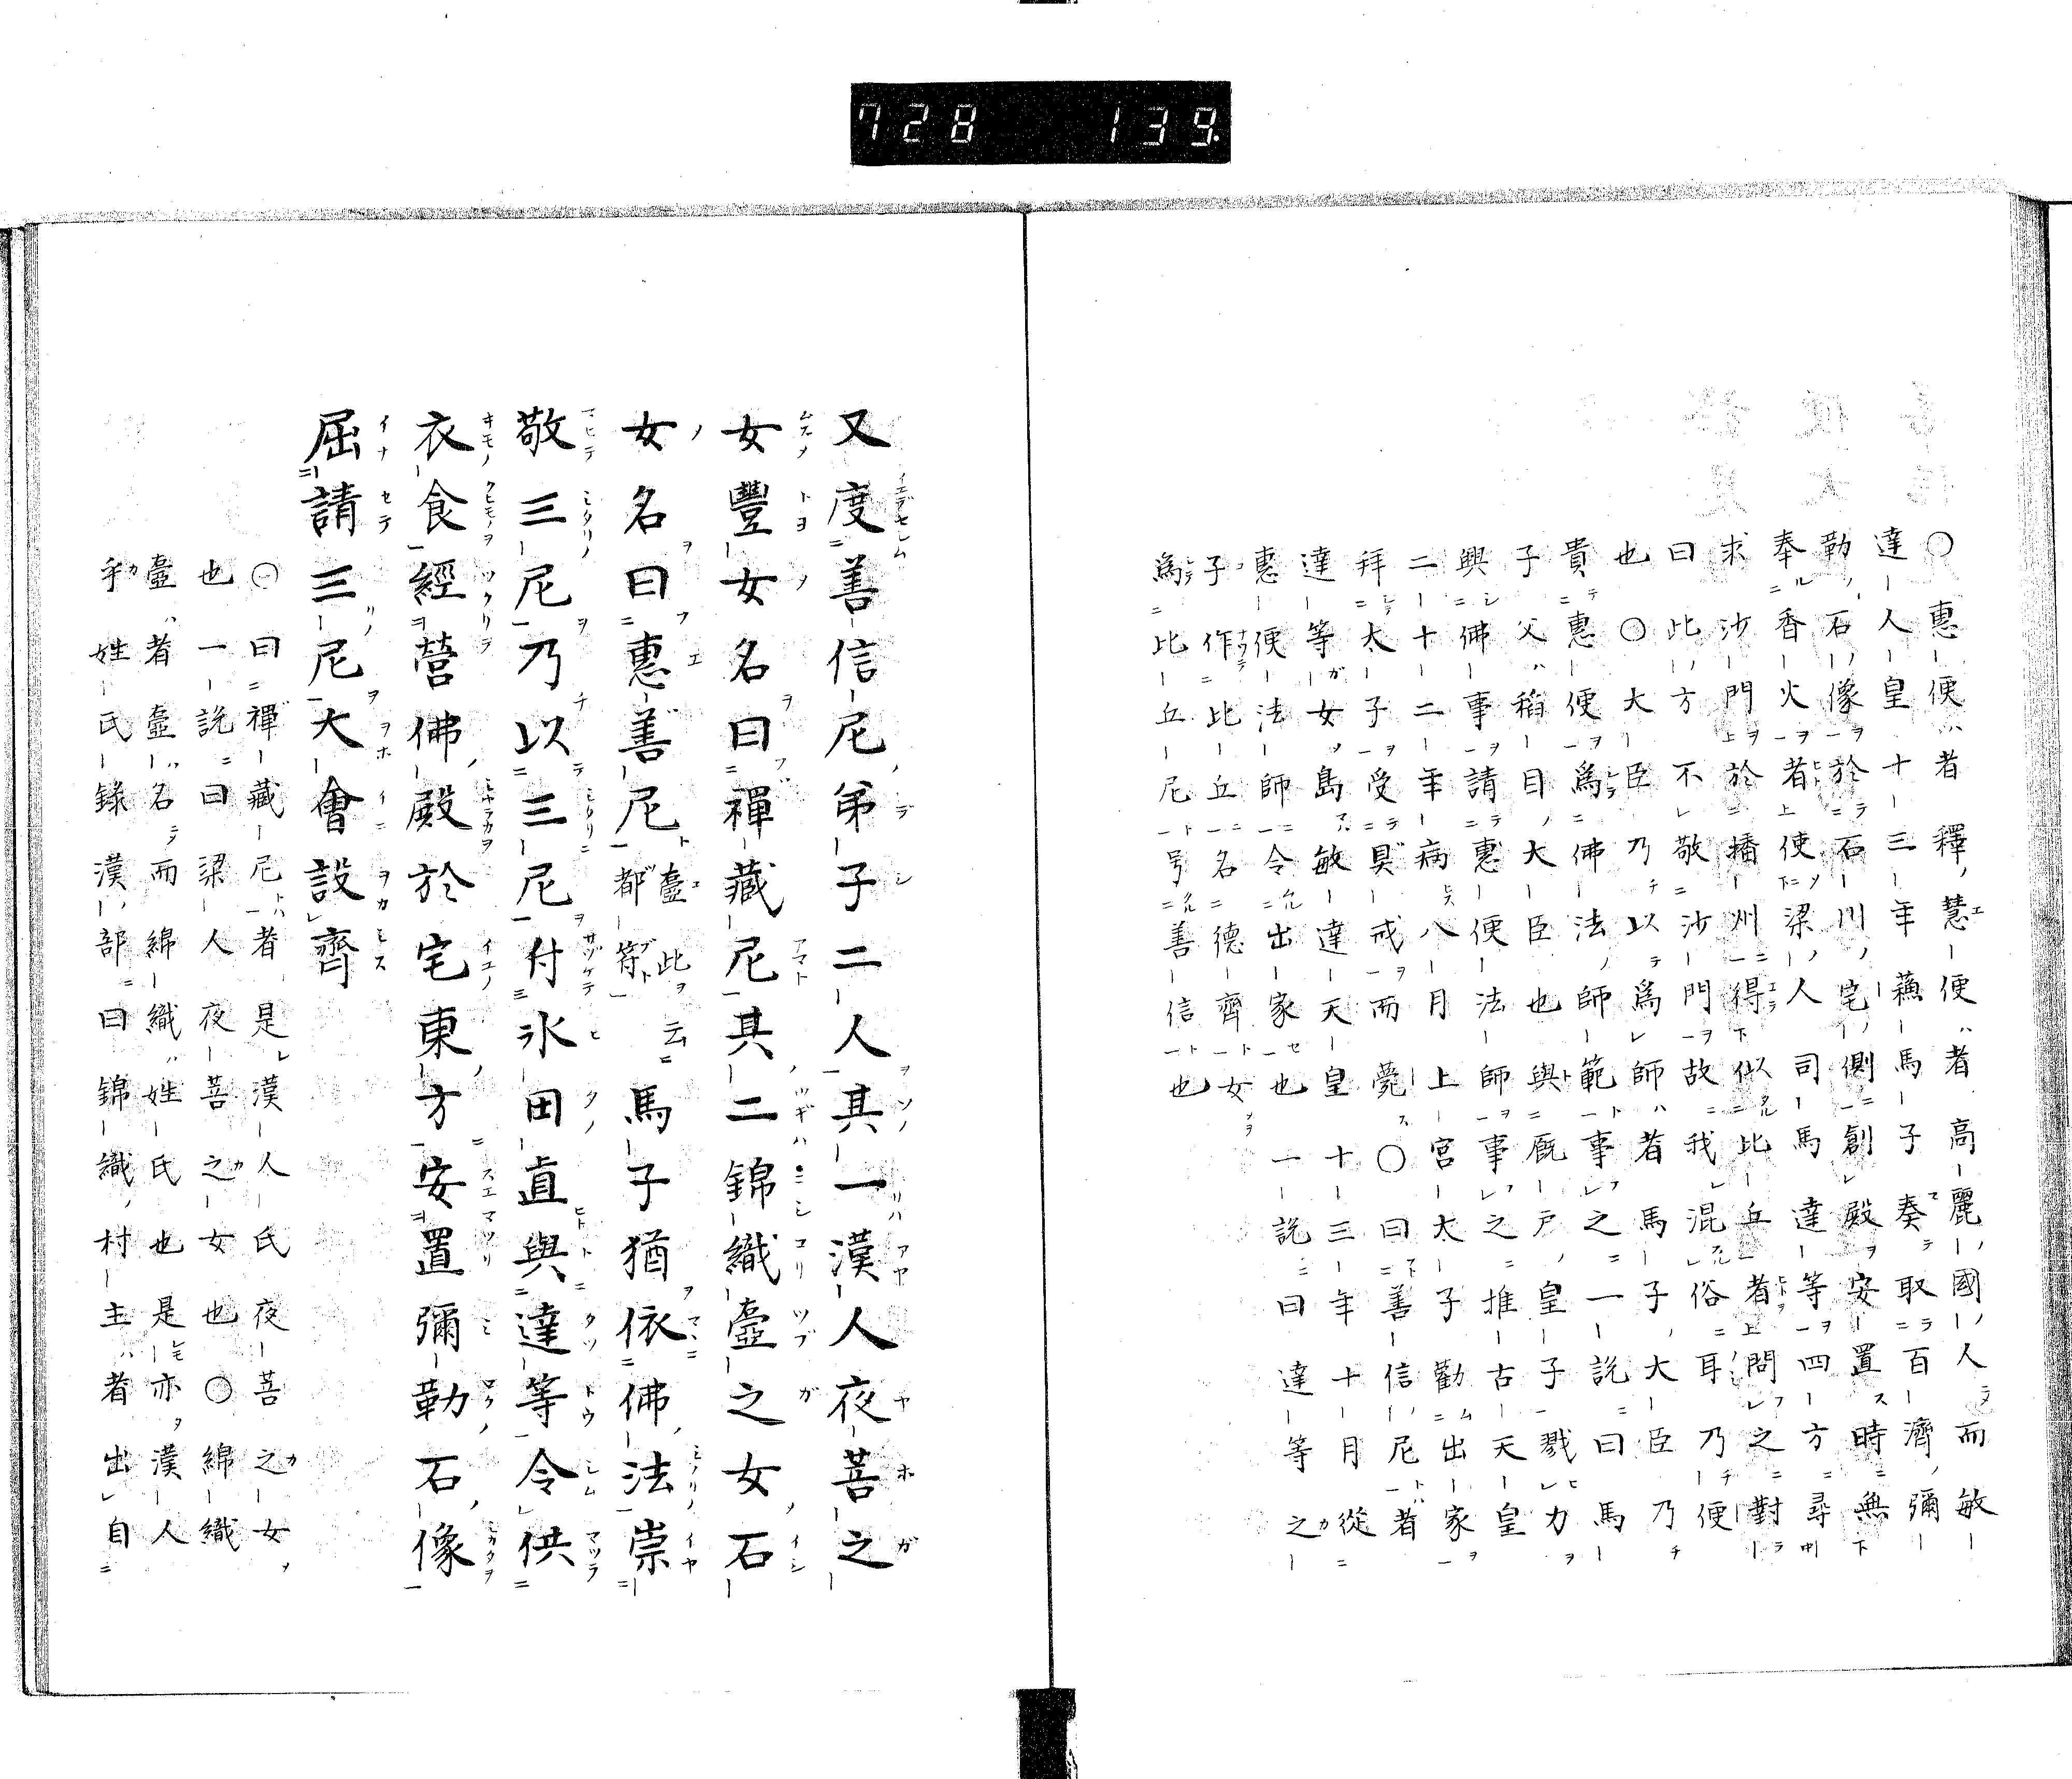 728 139
〇惠便者釋慧便者高麗國人而敏
達人皇十三年蘓馬子奏取百濟彌
勒石像於石川宅側創殿安置時無
奉香火者使梁人司馬達等四方尋
求沙門於播州得似比丘者問之對
曰此方不敬沙門故我混俗耳乃便
也〇大臣乃以爲師者馬子大臣乃
貴惠便爲佛法師範事之一説曰馬
子父稻目大臣也與厩戸皇子戮力
興佛事請惠便法師事之推古天皇
二十二年病八月上宮大子勸出家
拜太子受具戒而薨〇曰善信尼者
達等女島敏達天皇十三年十月從
惠便法師令出家也一説曰達等之
子作比丘名德齊女
爲比丘尼号善信也
又度善信尼弟子二人其一漢人夜菩之
女豐女名曰禪藏尼其二錦織壼之女石
女名曰惠善尼壼此云都符馬子猶依佛法崇
敬三尼乃以三尼付氷田直與達等令供
衣食經營佛殿於宅東方安置彌勒石像
屈請三尼大會設齊
〇曰禪藏尼者是漢人氏夜菩之女
也一説曰梁人夜菩之女也〇綿織
壼者壼名而綿織姓氏也是亦漢人
乎姓氏錄漢部曰錦織村主者出自